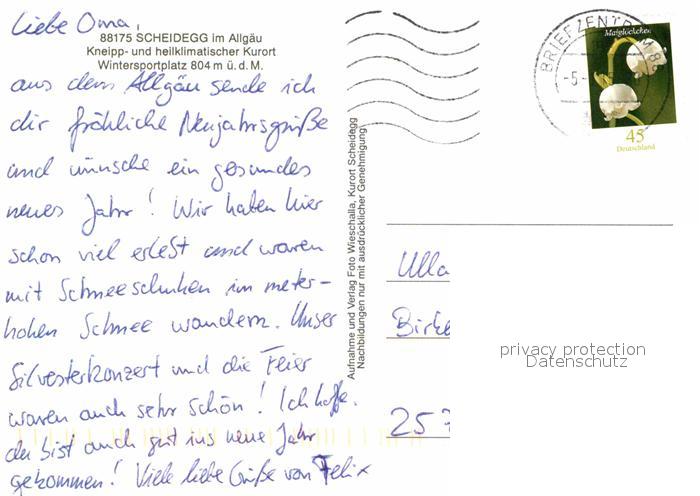 Liebe Oma,
88175 SCHEIDEGG im Allgäu
Kneipp- und heilklimatischer Kurort
Wintersportplatz 804 m ü. d. M.
aus dem Allgäu sende ich
dir fröhliche Neujahrsgrüße
und wünsche ein gesundes
neues Jahr! Wir haben hier
schon viel erlebt und waren
mit Schneeschuhen im meter-
hohen Schnee wandern. Unser
Silvesterkonzert und die Feier
waren auch sehr schön! Ich hoffe,
du bist auch gut ins neue Jahr
gekommen! Viele liebe Grüße von Felix
Aufnahme und Verlag Foto Wieschalla, Kurort Scheidegg
Nachbildungen nur mit ausdrücklicher Genehmigung
BRIEFZENTRUM 88
Maiglöckchen
45
Deutschland
Ulla
Birke
257
privacy protection
Datenschutz